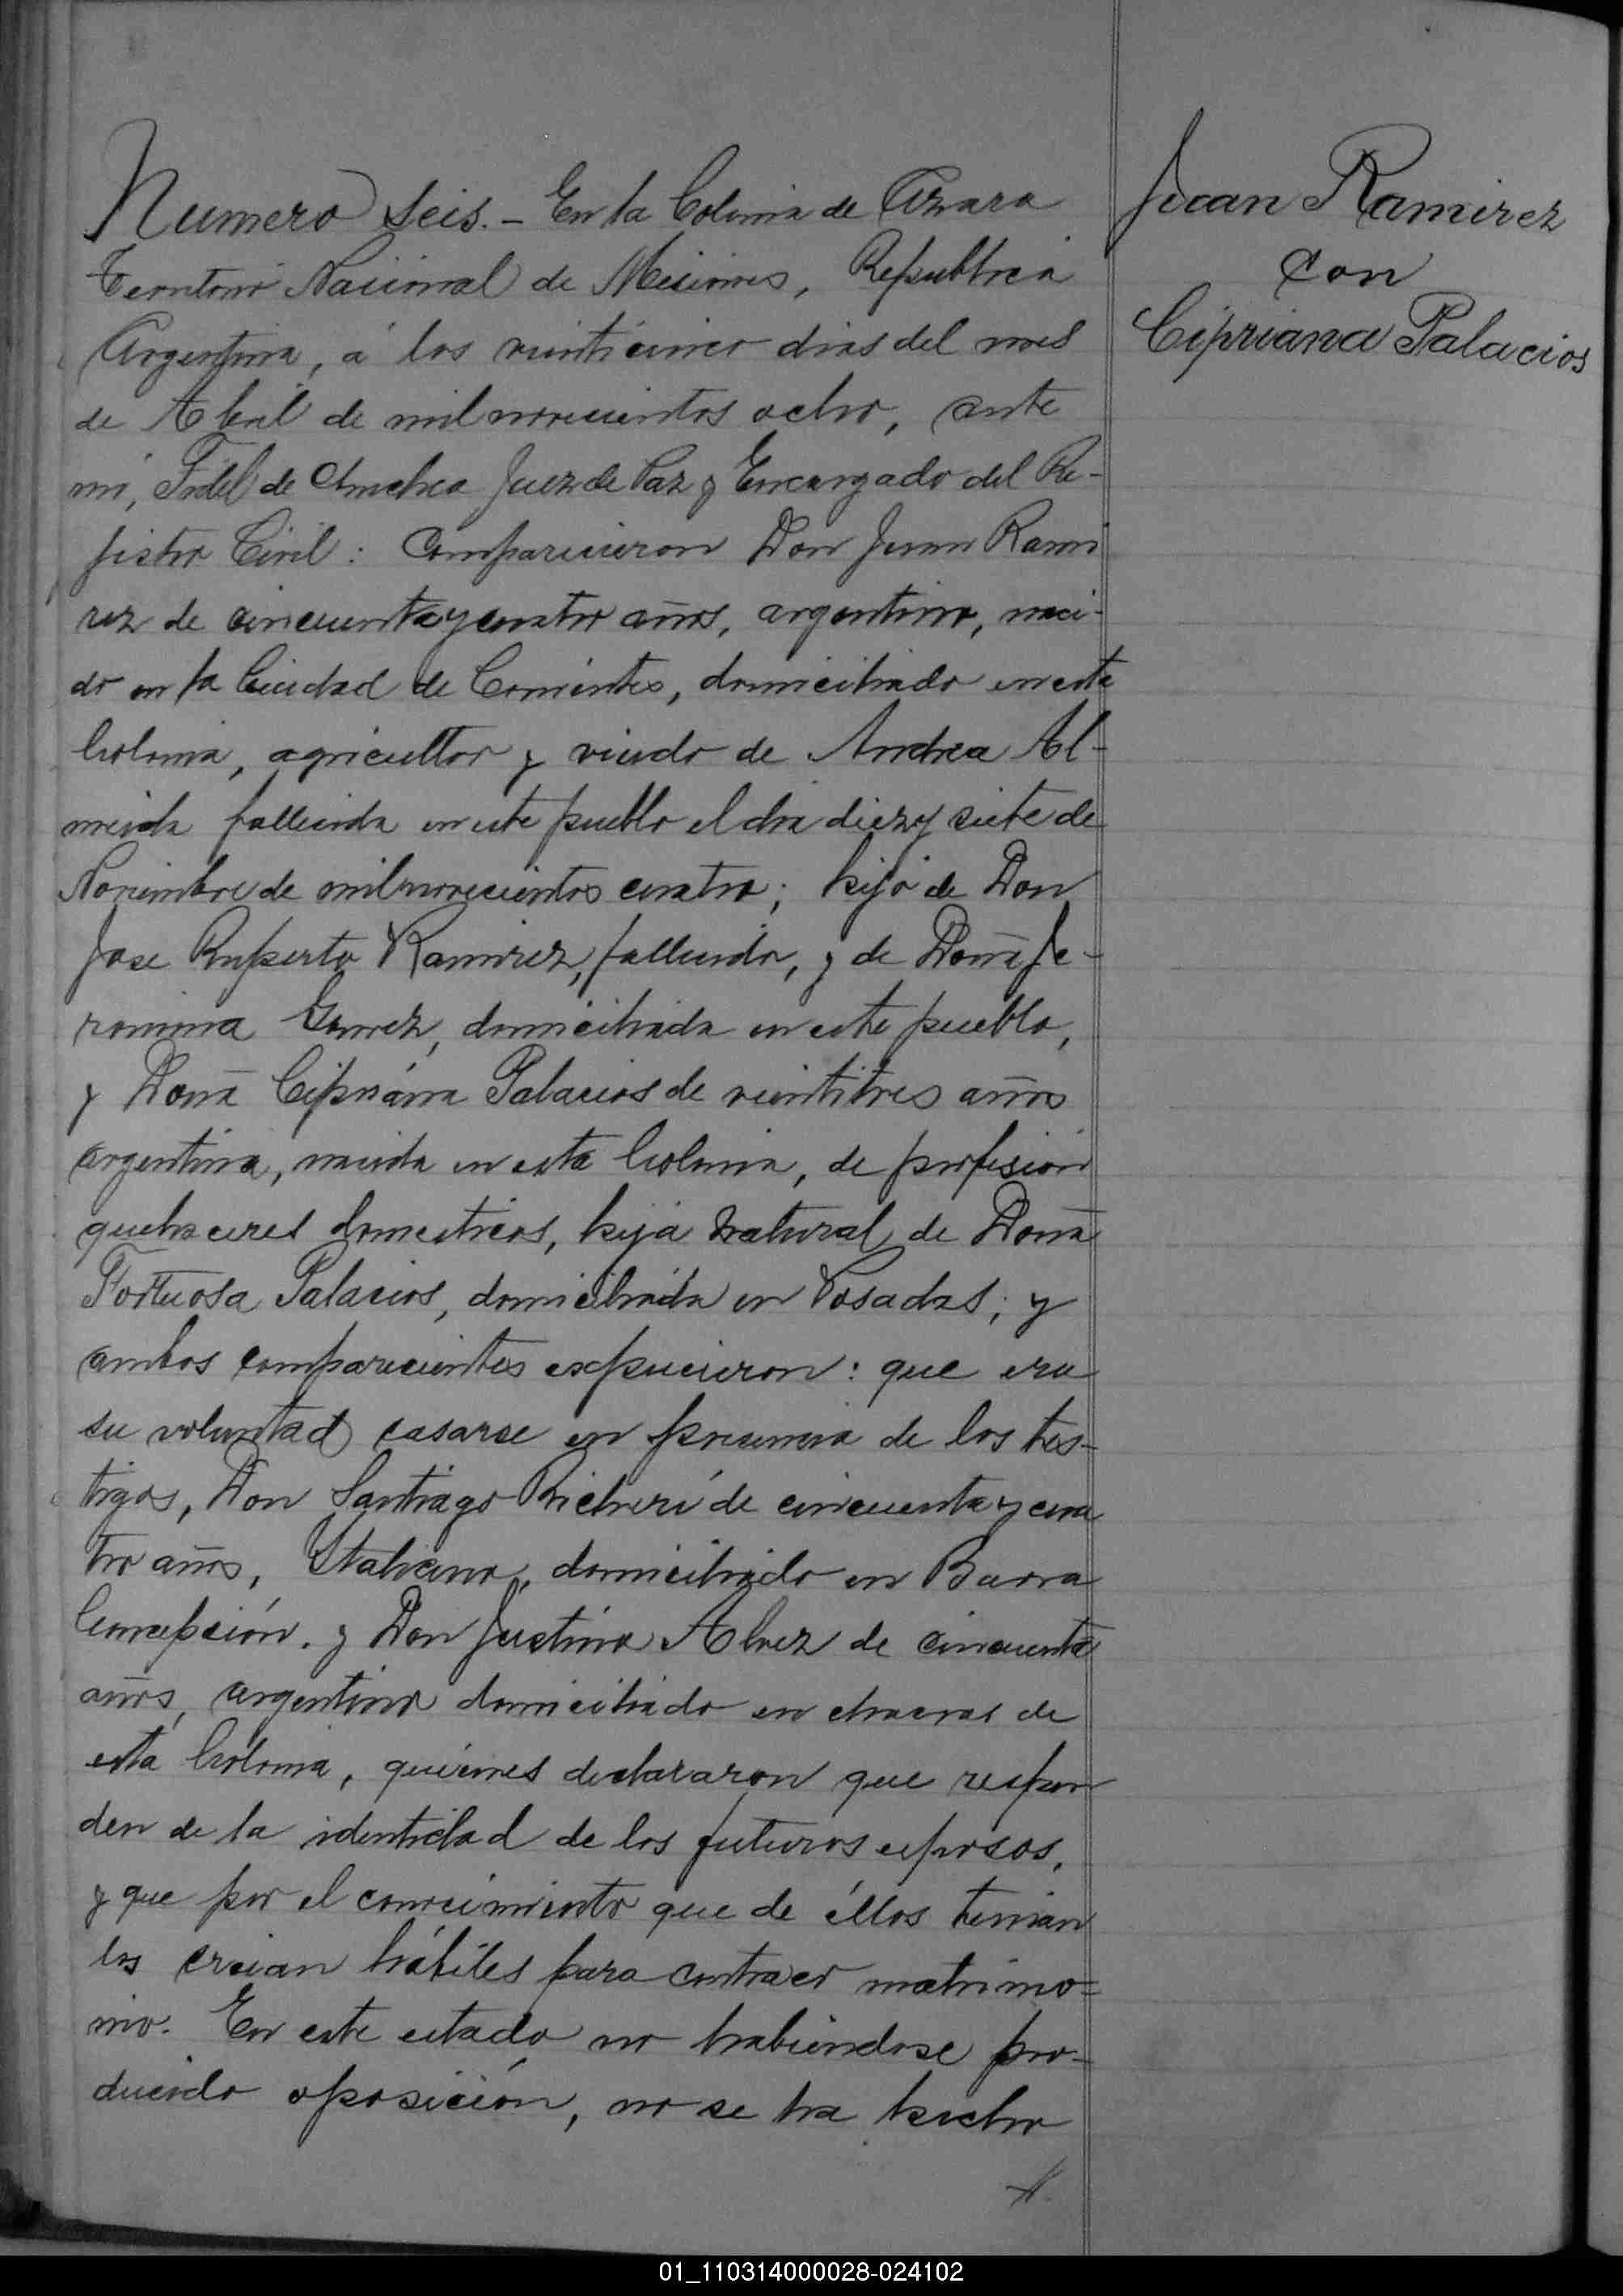 Numero Seis. – En la Colonia de Azara
Territorio Nacional de Misiones, Republica
Argentina, á los veinticinco dias del mes
de Abril de mil novecientos ocho, ante
mi, Fidel de Juez de Paz y Encargado del Re-
jistro Civil: Comparecieron Don Juan Rami
rez de cincuenta y cuatro años, argentino, naci-
do en la Ciudad de Corrientes, domiciliado en esta
Colonia, agricultor y viudo de Andrea Al-
meida fallecida en este pueblo el dia diez y siete de
Noviembre de mil novecientos cuatro; hijo de Don
Jose Ruperto Ramirez, fallecido, y de Doña Je-
ronima Gomez, domiciliada en este pueblo,
y Doña Cipriána Palacios de veintitres años
argentina, nacida en esta Colonia, de profesion
quehaceres domesticos, hija natural de Doña
Fortuosa Palacios, domiciliada en Posadas; y
ambos comparecientes expucieron: que era
su voluntad casarse en presencia de los tes-
tigos, Don Santiago Richieri de cincuenta y cua
tro años, Italiano, domiciliado en Barra
Concepción. y Don Justino Alvez de cincuenta
años, argentino domiciliado en chacras de
esta Colonia, quienes declararon que respon
den de la identidad de los futuros esposos,
y que por el conocimiento que de éllos tenian
los creian hábiles para contraer matrimo=
nio. En este estado no habiendose pro-
ducido oposición, no se ha hecho
Juan Ramirez
con
Cipriana Palacios
01_110314000028-024102